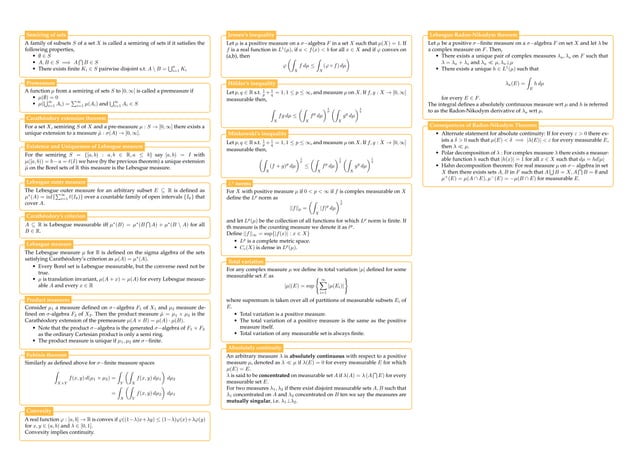 Semiring of sets
A family of subsets S of a set X is called a semiring of sets if it satisfies the
following properties,
• ∅ ∈ S
• A, B ∈ S ⟹ A ⋂ B ∈ S
• There exists finite Kᵢ ∈ S pairwise disjoint s.t. A \ B = ⋃ⁿᵢ₌₁ Kᵢ
Premeasure
A function μ from a semiring of sets S to [0, ∞] is called a premeasure if
• μ(∅) = 0
• μ(⋃ᵢ₌₁ Aᵢ) = ∑ᵢ₌₁ μ(Aᵢ) and ⋃ᵢ₌₁ Aᵢ ∈ S
Carathéodory extension theorem
For a set X, semiring S of X and a pre-measure μ : S → [0, ∞] there exists a
unique extension to a measure μ̄ : σ(A) → [0, ∞].
Existence and Uniqueness of Lebesgue measure
For the semiring S = {[a, b) : a, b ∈ R, a ≤ b} say
μ[a, b) = b − a
we have (by the previous theorem) a unique extension
μ̄ on the Borel sets of R this measure is the Lebesgue measure.
Lebesgue outer measure
The Lebesgue outer measure for an arbitrary subset E ⊆ R is defined as
over a countable family of open intervals {Iₙ} that
cover A.
Carathéodory's criterion
A ⊆ R is Lebesgue measurable iff μ*(B) = μ*(B ⋂ A) + μ*(B \ A) for all
B ∈ R.
Lebesgue measure
The Lebesgue measure μ for R is defined on the sigma algebra of the sets
satisfying Carathéodory's criterion as μ(A) = μ*(A).
• Every Borel set is Lebesgue measurable, but the converse need not be
true.
• μ is translation invariant, μ(A + x) = μ(A) for every Lebesgue measur-
able A and every x ∈ R
Product measures
Consider μ₁ a measure defined on σ−algebra F₁ of X₁ and measure μ₂ de-
fined on σ−algebra F₂ of X₂. Then the product measure μ̄ = μ₁ × μ₂ is the
Carathéodory extension of the premeasure μ(A × B) = μ(A) · μ(B).
• Note that the product σ−algebra is the generated σ−algebra of F₁ × F₂
as the ordinary Cartesian product is only a semi ring.
• The product measure is unique if μ₁, μ₂ are σ−finite.
Fubinis theorem
Similarly as defined above for σ−finite measure spaces
∫_{X×Y} f(x, y) d(μ₁ × μ₂) = ∫_Y (∫_X f(x, y) dμ₁) dμ₂
= ∫_X (∫_Y f(x, y) dμ₂) dμ₁
Convexity
A real function φ : [a, b] → R is convex if φ((1−λ)x+λy) ≤ (1−λ)φ(x)+λφ(y)
for x, y ∈ (a, b) and λ ∈ [0, 1].
Convexity implies continuity.
Jensen's inequality
Let μ be a positive measure on a σ−algebra F in a set X such that μ(X) = 1. If
f is a real function in L¹(μ), if a < f(x) < b for all x ∈ X and if φ convex on
(a,b), then
φ(∫_X f dμ) ≤ ∫_X (φ ∘ f) dμ
Hölder's inequality
Let p, q ∈ R s.t. 1/p + 1/q = 1, 1 ≤ p ≤ ∞, and measure μ on X. If f, g : X → [0, ∞]
measurable then,
∫_X fg dμ ≤ (∫_X fᵖ dμ)^{1/p} (∫_X g^q dμ)^{1/q}
Minkowski's inequality
Let p, q ∈ R s.t. 1/p + 1/q = 1, 1 ≤ p ≤ ∞, and measure μ on X. If f, g : X → [0, ∞]
measurable then,
Lᵖ norm
For X with positive measure μ if 0 < p < ∞ if f is complex measurable on X
define the Lᵖ norm as
||f||ₚ = (∫_X |f|ᵖ dμ)^{1/p}
and let Lᵖ(μ) be the collection of all functions for which Lᵖ norm is finite. If
μ is the counting measure we denote it as lᵖ.
Define ||f||∞ = sup{|f(x)| : x ∈ X}
• Lᵖ is a complete metric space.
• C꜀(X) is dense in Lᵖ(μ).
Total variation
For any complex measure μ we define its total variation |μ| defined for some
measurable set E as
|μ|(E) = sup {∑ᵢ₌₁ |μ(Eᵢ)|}
where supremum is taken over all of partitions of measurable subsets Eᵢ of
E.
• Total variation is a positive measure.
• The total variation of a positive measure is the same as the positive
measure itself.
• Total variation of any measurable set is always finite.
Absolutely continuity
An arbitrary measure λ is absolutely continuous with respect to a positive
measure μ, denoted as λ ≪ μ if λ(E) = 0 for every measurable E for which
μ(E) = 0.
λ is said to be concentrated on measurable set A if λ(A) = λ(A ⋂ E) for every
measurable set E.
For two measures λ₁, λ₂ if there exist disjoint measurable sets A, B such that
λ₁ concentrated on A and λ₂ concentrated on B then we say the measures are
mutually singular, i.e. λ₁⊥λ₂.
Lebesgue Radon-Nikodym theorem
Let μ be a positive σ−finite measure on a σ−algebra F on set X and let λ be
a complex measure on F. Then,
• There exists a unique pair of complex measures λₐ, λₛ on F such that
λ = λₐ + λₛ and λₐ ≪ μ, λₛ⊥μ
• There exists a unique h ∈ L¹(μ) such that
λₐ(E) = ∫_E h dμ
for every E ∈ F.
The integral defines a absolutely continuous measure wrt μ and h is referred
to as the Radon-Nikodym derivative of λₐ wrt μ.
Consequences of Radon-Nikodym Theorem
• Alternate statement for absolute continuity: If for every ε > 0 there ex-
ists a δ > 0 such that μ(E) < δ ⟹ |λ(E)| < ε for every measurable E,
then λ ≪ μ.
• Polar decomposition of λ : For complex measure λ there exists a measur-
able function h such that |h(x)| = 1 for all x ∈ X such that dμ = hd|μ|
• Hahn decomposition theorem: For real measure μ on σ−algebra in set
X then there exists sets A, B in F such that A ⋃ B = X, A ⋂ B = ∅ and
μ⁺(E) = μ(A ∩ E), μ⁻(E) = −μ(B ∩ E) for measurable E.